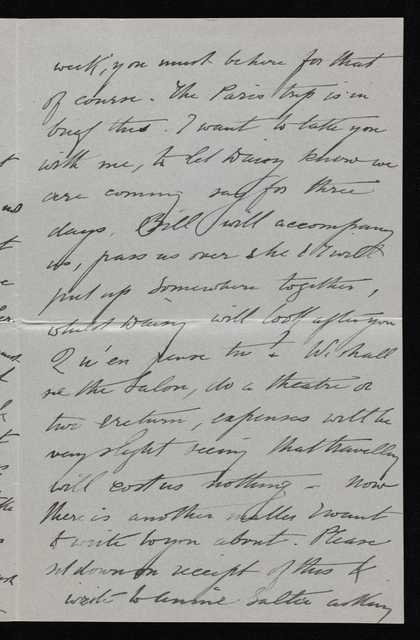 week, you must be here for that
of course. The Paris trip is in
brief this. I want to take you
with me, to let Daisy know we
are coming say for three
days. Bill will accompany
us, pass us over & he & I will
put up somewhere together,
whilst Daisy will look after you
Qu'en pense tu? We shall
see the Salon, do a theatre or
two & return, expenses will be
very slight seeing that travelling
will cost us nothing - Now
there is another matter I want
to write to you about. Please
sit down on receipt of this &
write to Salter asking